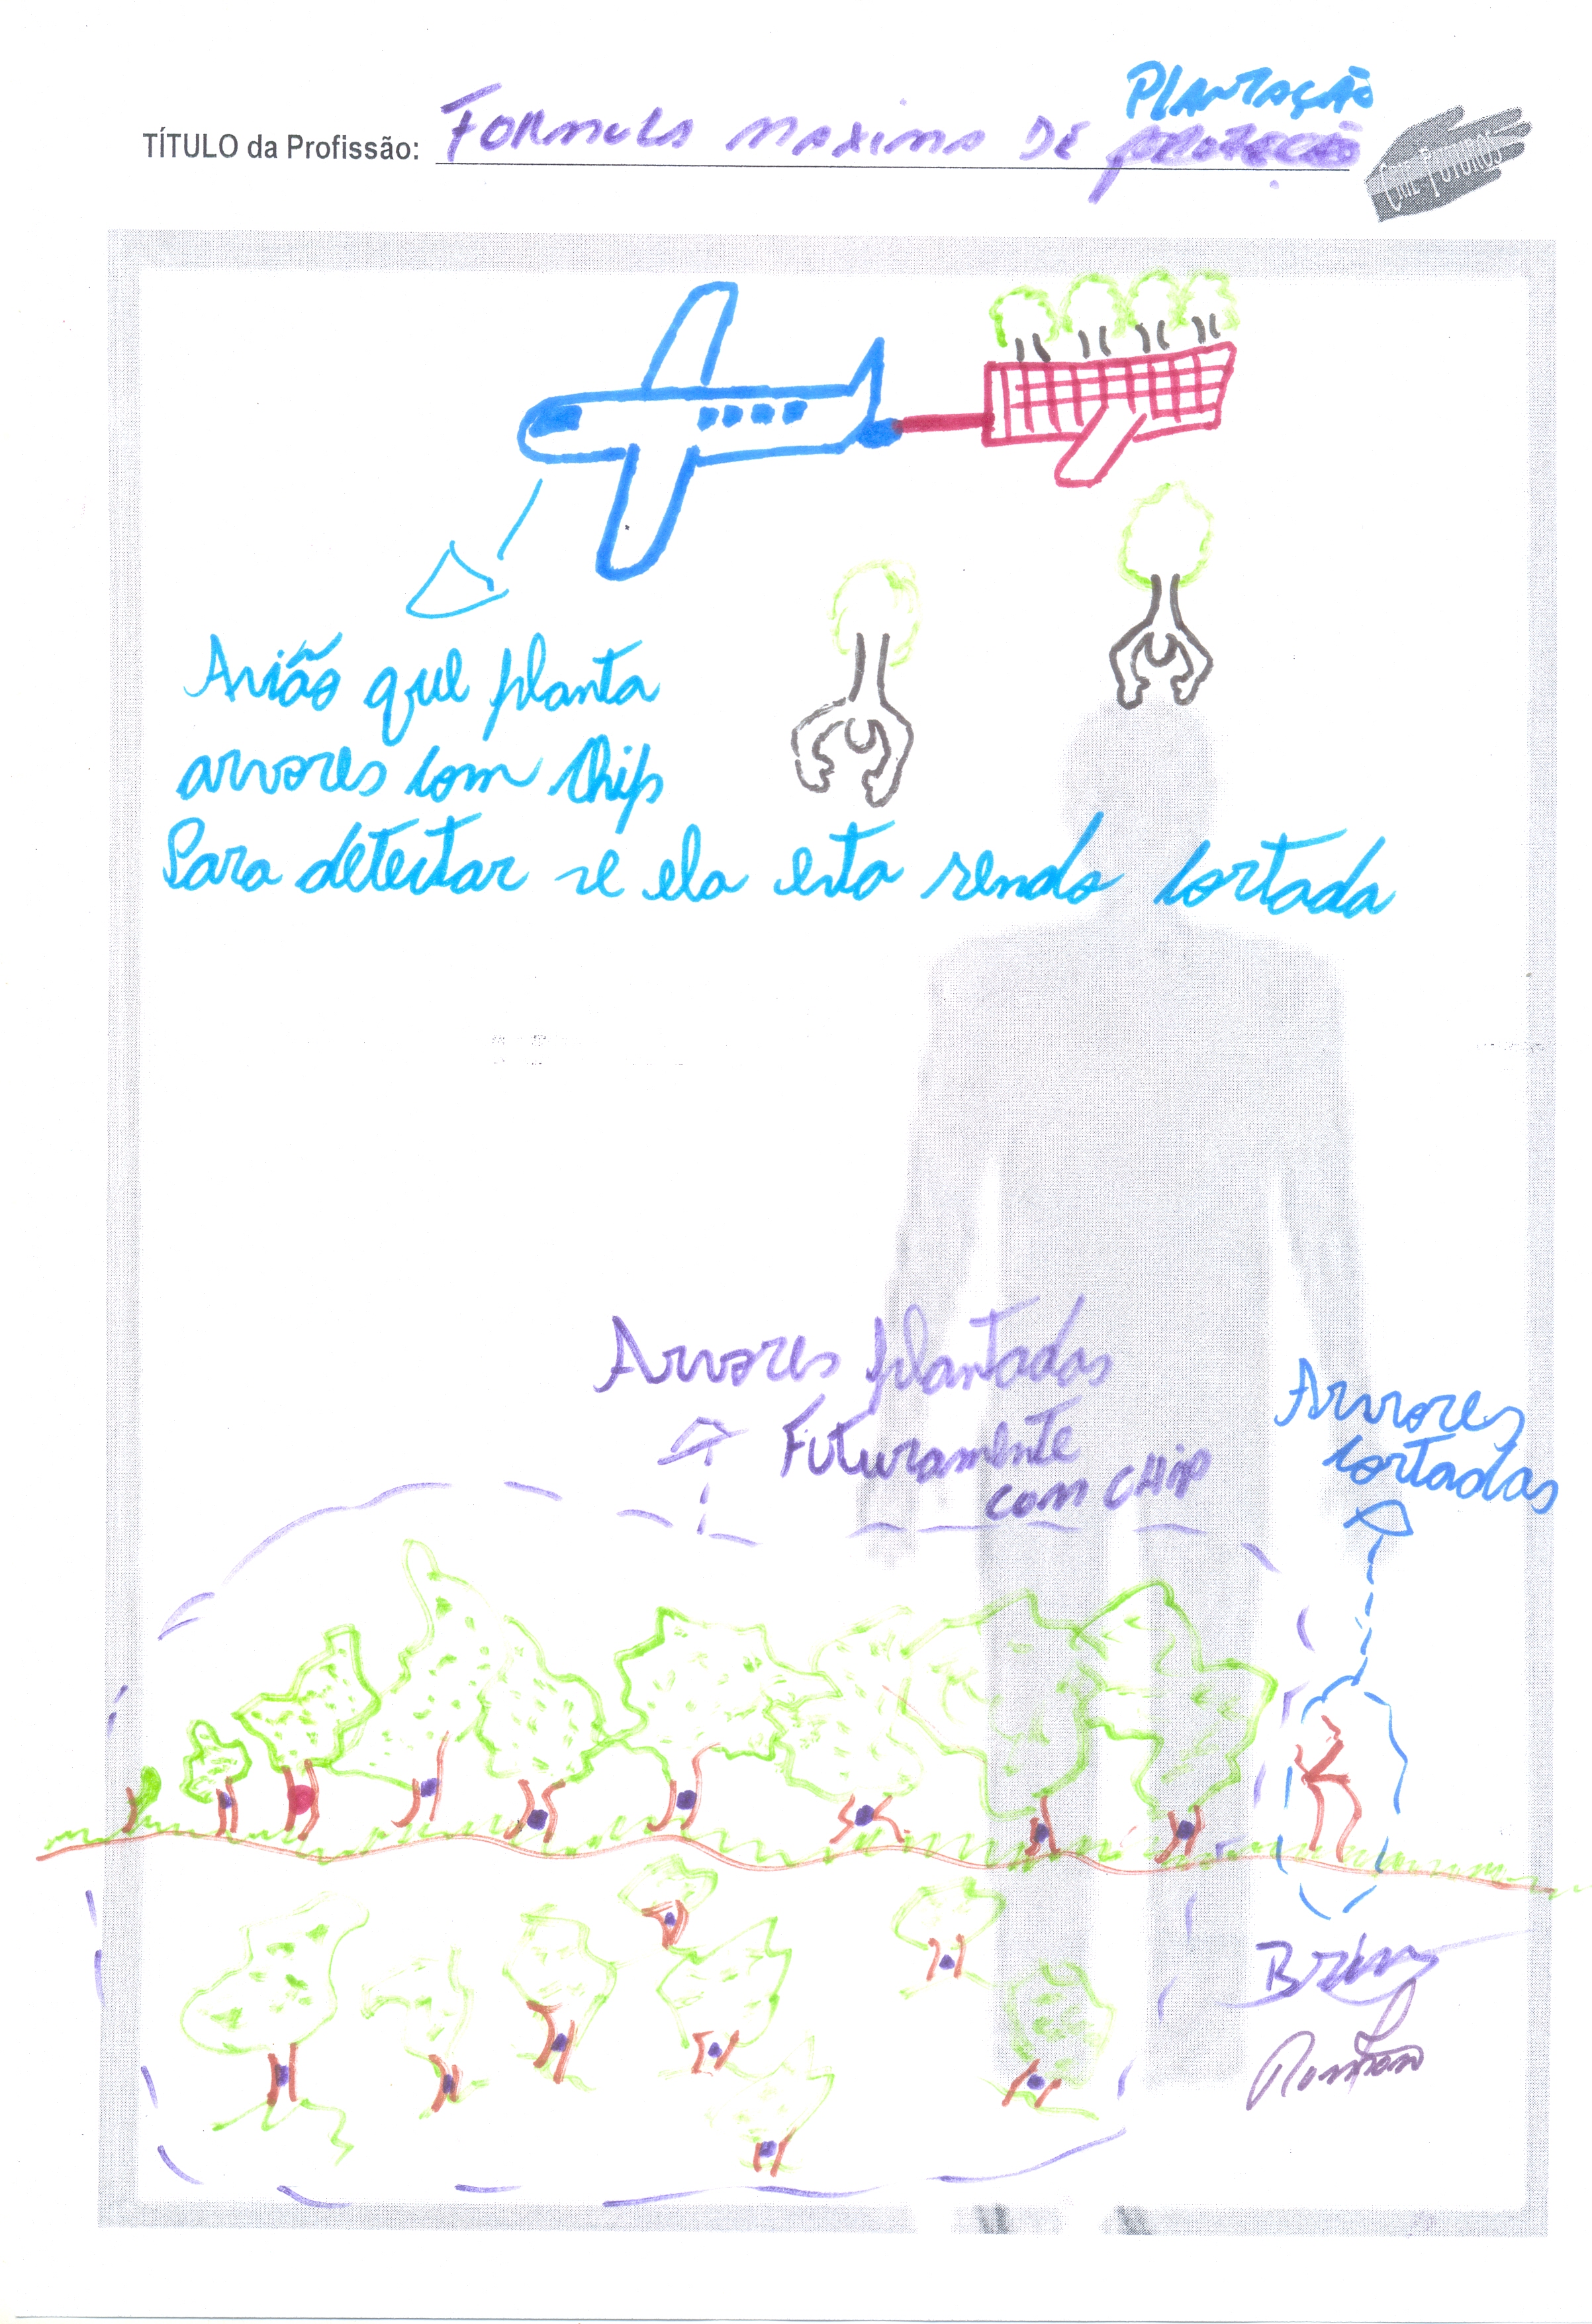 PLANTAÇÃO
TÍTULO da Profissão: FORMULA MAXIMA DE PROTEÇÃO
CRIE FUTUROS
Avião que planta
arvores com Chip
Para detectar se ela esta sendo cortada
Arvores plantadas
Futuramente
com CHIP
Arvores
cortadas